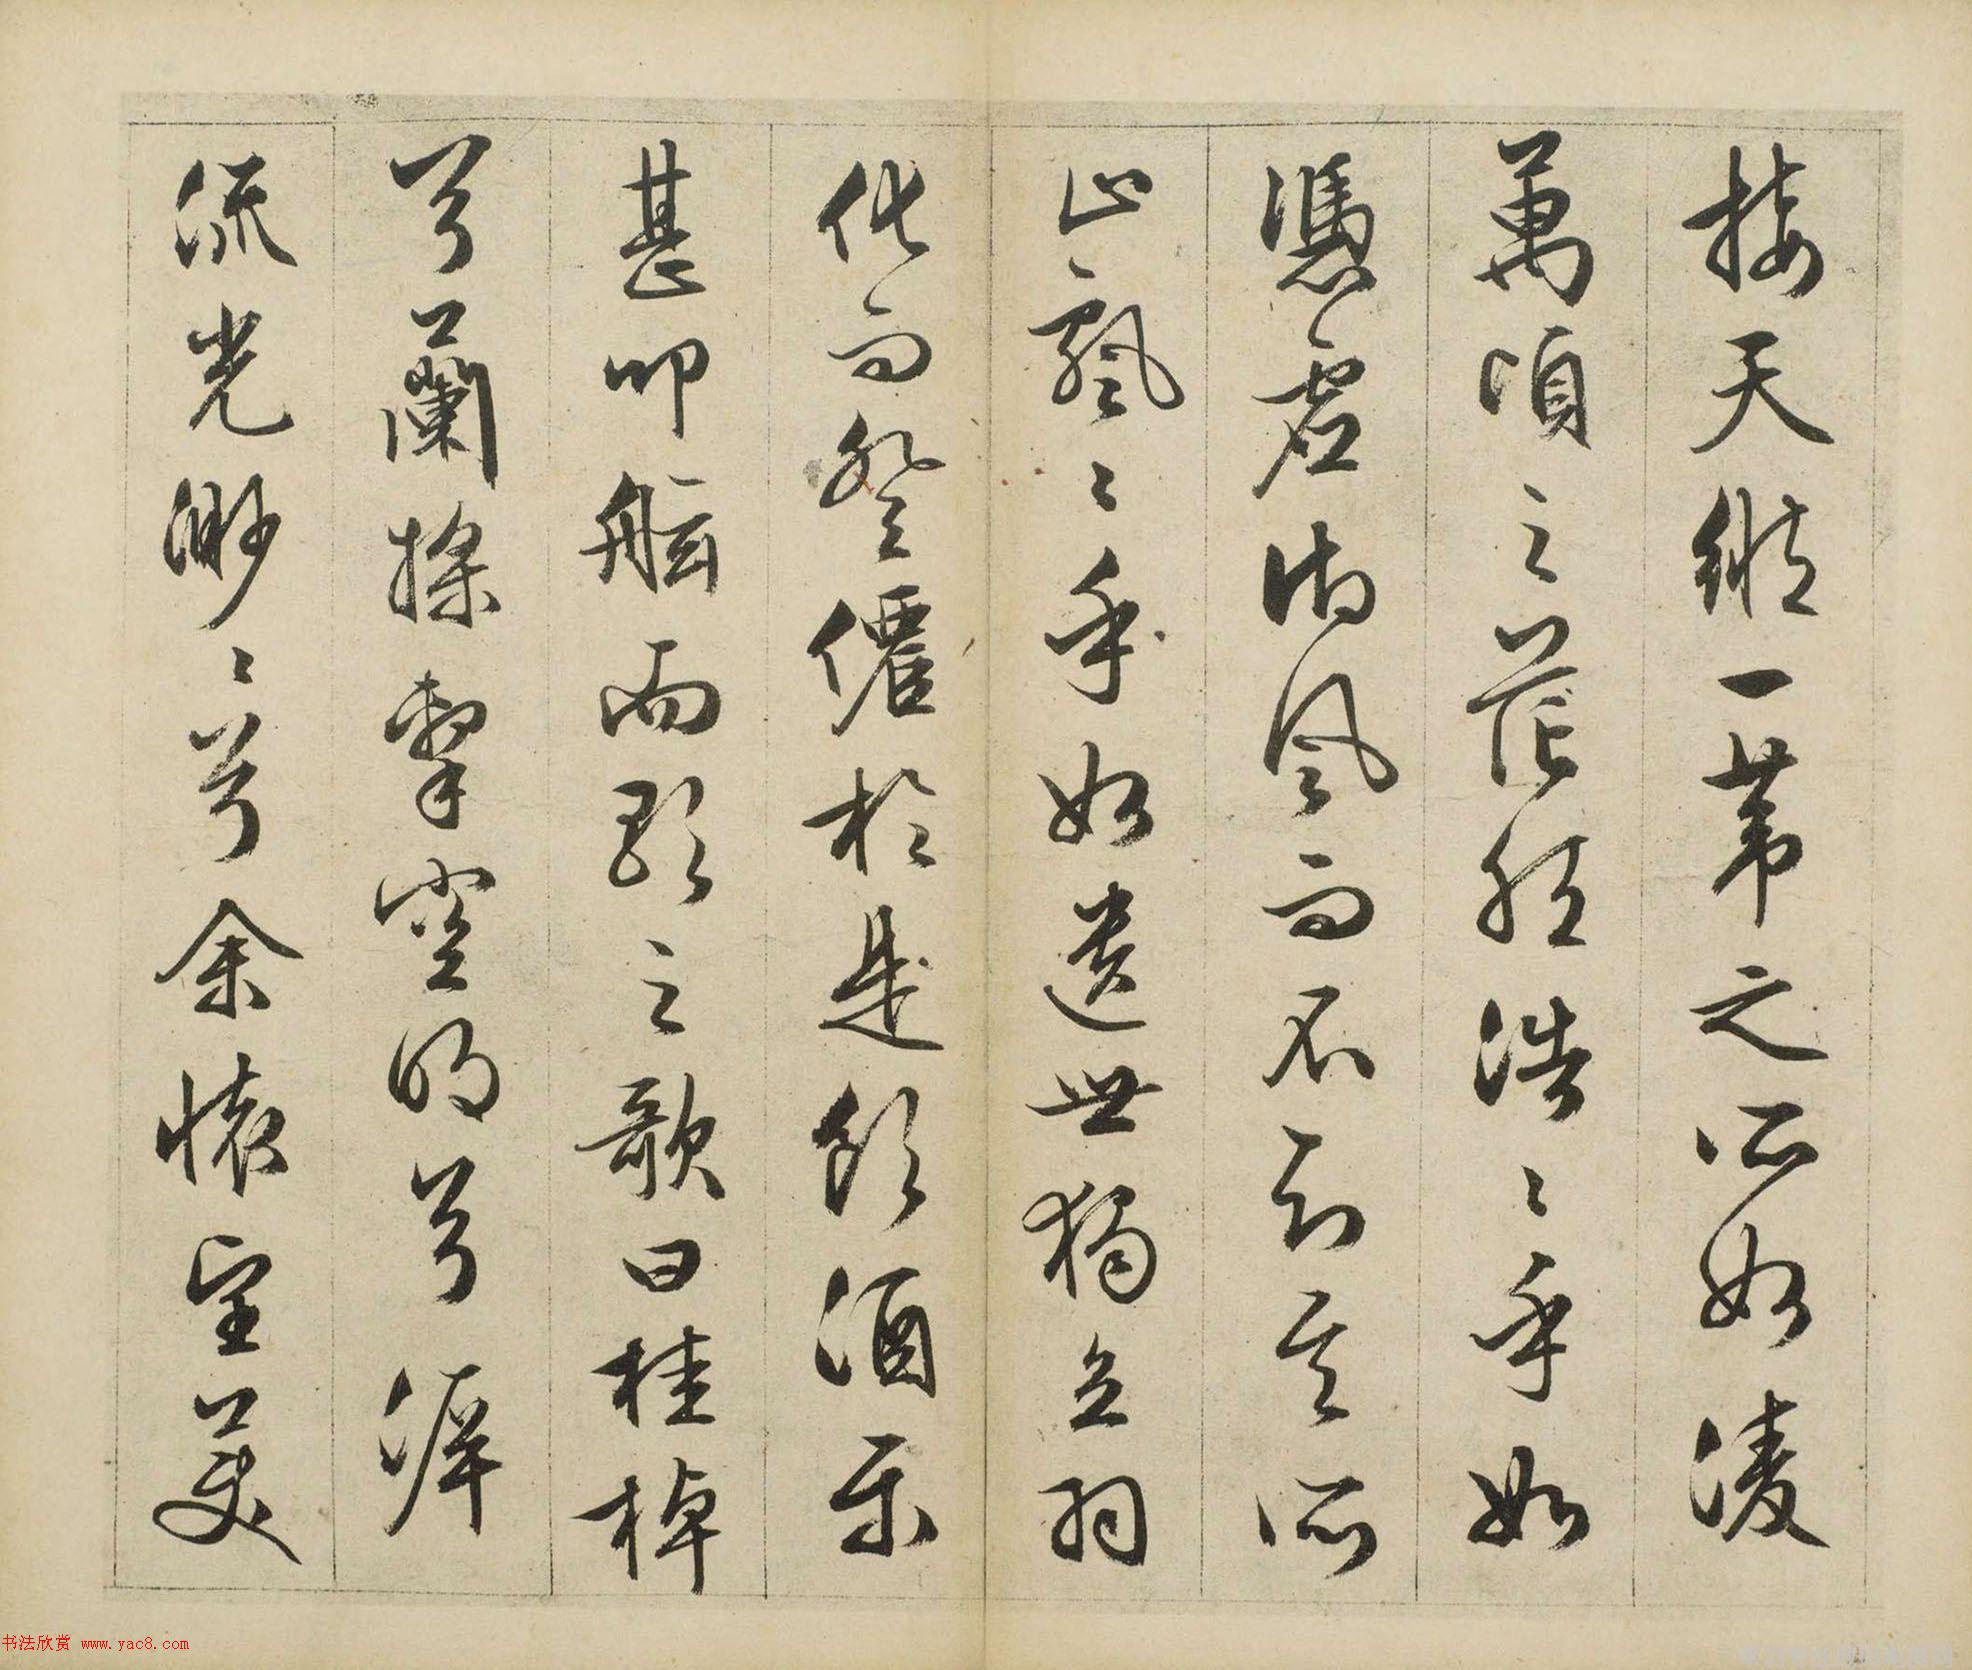 接天縱一葦之所如淩
萬頃之茫然浩〻乎如
馮虛御風而不知其所
止飄〻乎如遺世獨立羽
化而登僊於是飲酒樂
甚叩舷而歌之歌曰桂棹
兮蘭槳擊空明兮泝
流光渺〻兮余懷望美
书法欣赏 www.yac8.com